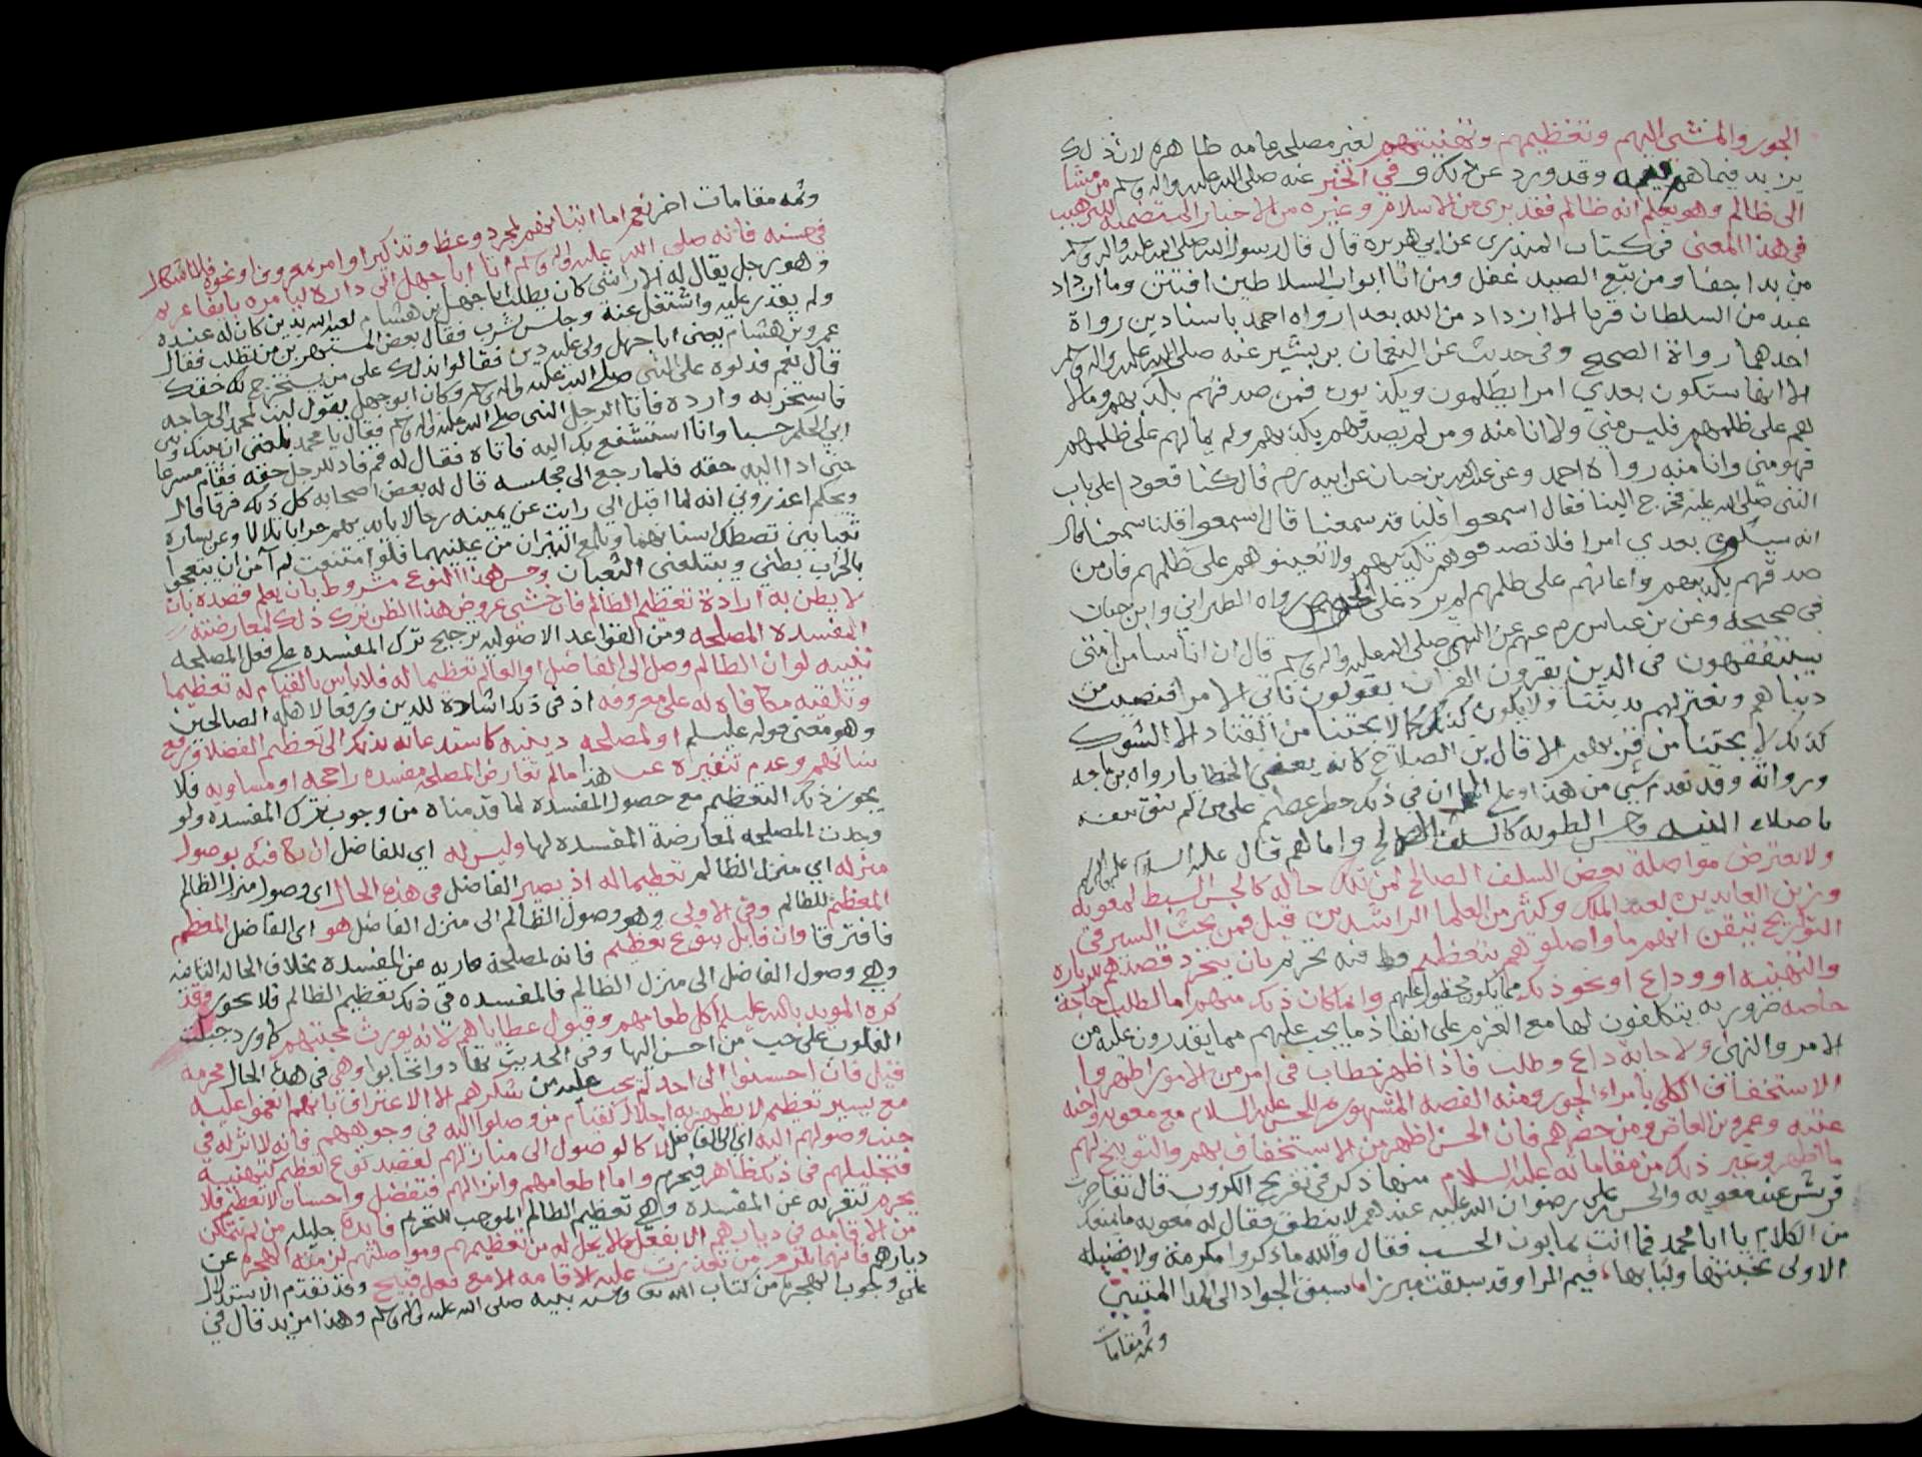 الجور والمشي اليهم وتعظيمهم وتهنيتهم لغير مصلحه عامه ظاهره لان ذلك
يزيد فيما هم فيه وقد ورد عن ذلك و في الخبر عنه صلى الله عليه واله وسلم من مشا
الى ظالم وهو يعلم انه ظالم فقد برى من الاسلام وغيره من الاخبار المتضمنه للترهيب
في هذا المعنى في كتاب المنذرى عن ابي هريره قال قال رسول الله صلى الله عليه واله وسلم
من بدا جفا ومن تبع الصيد غفل ومن اتا ابواب السلاطين افتتن وما ازداد
عبد من السلطان قربا الا ازداد من الله بعدا رواه احمد باسنادين رواة
احدهما رواة الصحيح وفي حديث عن النعمان بن بشير عنه صلى الله عليه واله وسلم
الا انها ستكون بعدي امرا يظلمون ويكذبون فمن صدقهم بكذبهم ومالا
هم على ظلمهم فليس مني ولا انا منه ومن لم يصدقهم بكذبهم ولم يمالهم على ظلمهم
فهو مني وانا منه رواه احمد وعن عبد الله بن حبان عن ابيه رضم قال كنا قعودا على باب
النبي صلى الله عليه فخرج الينا فقال اسمعوا قلنا قد سمعنا قال اسمعوا قلنا سمعنا قال
انه سيكون بعدي امرا فلا تصدقوهم بكذبهم ولا تعينوهم على ظلمهم فان من
صدقهم بكذبهم واعانهم على ظلمهم لم يرد على الحوض رواه الطبراني وابن حبان
في صحيحه وعن بن عباس رضم عنهم عن النبي صلى الله عليه واله وسلم قال ان اناسا من امتي
سيتفقهون في الدين يقرون القران يقولون ناتي الامرا فنصيب من
دنياهم ونعتزلهم بديننا ولا يكون ذلك كما لا يجتنا من القتاد الا الشوك
كذلك لا يجتنا من قربهم الا قال بن الصلاح كانه يعني الخطايا رواه بن ماجه
ورواته وقد تقدم شي من هذا وعلى ان في ذلك خطر عظيم على من لم يثق بنفسه
باصلاء النيه وحسن الطويه كالسلف الصالح وامالهم قال عليه السلام
ولا يعترض مواصلة بعض السلف الصالح لمن تلك حاله كالحسن السبط لمعويه
وزين العابدين لعبد الملك وكثير من العلما الراشدين قيل فمن بحث السير في
التواريخ تيقن انهم ما واصلوهم بتعظيم قط فيه تحريم بان يتجرد قصدهم لزياره
والتهنيه او وداع او نحو ذلك مما يكون محظورا عليهم وانما كان ذلك منهم اما لطلب حاجة
خاصه ضروريه يتكلفون لها مع العزم على انفاذ ما يجب عليهم مما يقدرون عليه من
الامر والنهي ولاجابة داع وطلب فاذا ظهر خطاب في امر من الامور اظهروا
الاستخفاف الكلى بامراء الجور ومنه القصه المشهوره للحسن عليه السلام مع معويه واخيه
عتبه وعمرو بن العاص ومن حضرهم فان الحسن اظهر من الاستخفاف بهم والتوبيخ لهم
ما اظهر وغير ذلك من مقاماته عليه السلام منها ذكر في تفريج الكروب قال تفاخرت
قريش عند معويه والحسن بن علي رضوان الله عليه عندهم لا ينطق فقال له معويه ما منعك
من الكلام يا ابا محمد فما انت بمابون الحسب فقال والله ما ذكروا مكرمة ولا فضيله
الا ولي محضها ولبابها، فيم المرا وقد سبقت مبرزا ما سبق الجواد الى المدا المتنفس
وثمه مقامات
وثمه مقامات اخر نعم اما اتيانهم لمجرد وعظ وتذكير او امر بمعروف او نحوه فلا اشكال
في حسنه فانه صلى الله عليه واله وسلم اتا ابا جهل الى داره ليامره بايفا غريم
وهو رجل يقال له الاراشي كان يطلب ابا جهل بن هشام لعبد الله يدين كان له عنده
ولم يقدر عليه واشتغل عنه وجلس يشرب فقال بعض المستهزين من تطلب فقال
عمرو بن هشام يعني ابا جهل ولي عليه دين فقالوا ندلك على من يستخرج لك حقك
قال نعم فدلوه على النبي صلى الله عليه واله وسلم وكان ابو جهل يقول ليت لمحمد الي حاجه
فاستخر به وارده فاتا الرجل النبي صلى الله عليه واله وسلم فقال يا محمد بلغني ان بينك وبين
ابي الحكم حسبا وانا استشفع بك اليه فاتاه فقال له قم فاد للرجل حقه فقام مسرعا
حتى ادا اليه حقه فلما رجع الى مجلسه قال له بعض اصحابه كل ذلك فرقا قال
ويحكم اعذروني انه لما اقبل الي رايت عن يمينه رجالا بايديهم حرابا تلالا وعن يساره
ثعبانين تصطك اسنانهما وتلمع النيران من عينيهما فلو امتنعت لم آمن ان يبعجوا
بالحراب بطني ويبتلعني الثعبان وحسن هذا النوع مشروط بان يعلم قصده بان
لا يظن به ارادة تعظيم الظالم فان خشي عروض هذا الظن ترك ذلك لمعارضته
المفسده المصلحه ومن القواعد الاصوليه ترجيح ترك المفسده على فعل المصلحه
تنبيه لو ان الظالم وصل الى الفاضل او العالم تعظيما له فلا باس بالقيام له تعظيما
وتلقيه مكافاه له على معروفه اذ في ذلك اشادة للدين ورفعا لاهله الصالحين
وهو معنى قوله عليلم او لمصلحه دينيه كاستدعائه بذلك الى تعظيم الفضلا ورفع
شانهم وعدم تنفيره عن هذا مالم تعارض المصلحه مفسده راجحه او مساويه فلا
يجوز ذلك التعظيم مع حصول المفسدة لما قدمناه من وجوب ترك المفسده ولو
وجدت المصلحه لمعارضة المفسده لها وليس له اي للفاضل ان يكافئه بوصول
منزله اي منزل الظالم تعظيما له اذ يصير الفاضل في هذه الحال اي وصول منزل الظالم
المعظم للظالم وفي الاولى وهو وصول الظالم الى منزل الفاضل هو اي الفاضل المعظم
فافترقا وان قابل بنوع تعظيم فانه لمصلحة عاريه عن المفسدة بخلاف الحاله الثانيه
وهي وصول الفاضل الى منزل الظالم فالمفسده في ذلك تعظيم الظالم فلا يجوز وقد
كره المويد بالله عليلم اكل طعامهم وقبول عطاياهم لانه يورث محبتهم كما ورد جبلت
القلوب على حب من احسن اليها وفي الحديث تهادوا تحابوا وهي في هذه الحال محرمه
قيل فان احسنوا الى احد لم يجب عليه من شكرهم الا الاعتراف بانهم انعموا عليه
مع يسير تعظيم لا يظهر به اجلال كقيام من وصلوا اليه في وجوههم فانه لا اثر له في
جنب وصولهم اليه اي الى الفاضل لا كالوصول الى منازلهم لقصد نوع تعظيم كتهنية
فتجليلهم في ذلك ظاهر فيحرم واما اطعامهم وانزالهم فتفضل واحسان لا تعظيم فلا
يحرم لتعريه عن المفسده وهي تعظيم الظالم الموجب للتحريم فايدة جليله من لم يتمكن
من الاقامه في ديارهم الا بفعل ما لا يحل له من تعظيمهم ومواصلتهم لزمته الهجره عن
ديارهم فانها تلزم من تعذرت عليه الاقامه الا مع فعل قبيح وقد تقدم الاستدلال
على وجوب الهجره من كتاب الله تعالى وسنه نبيه صلى الله عليه واله وسلم وهذا مزيد قال في